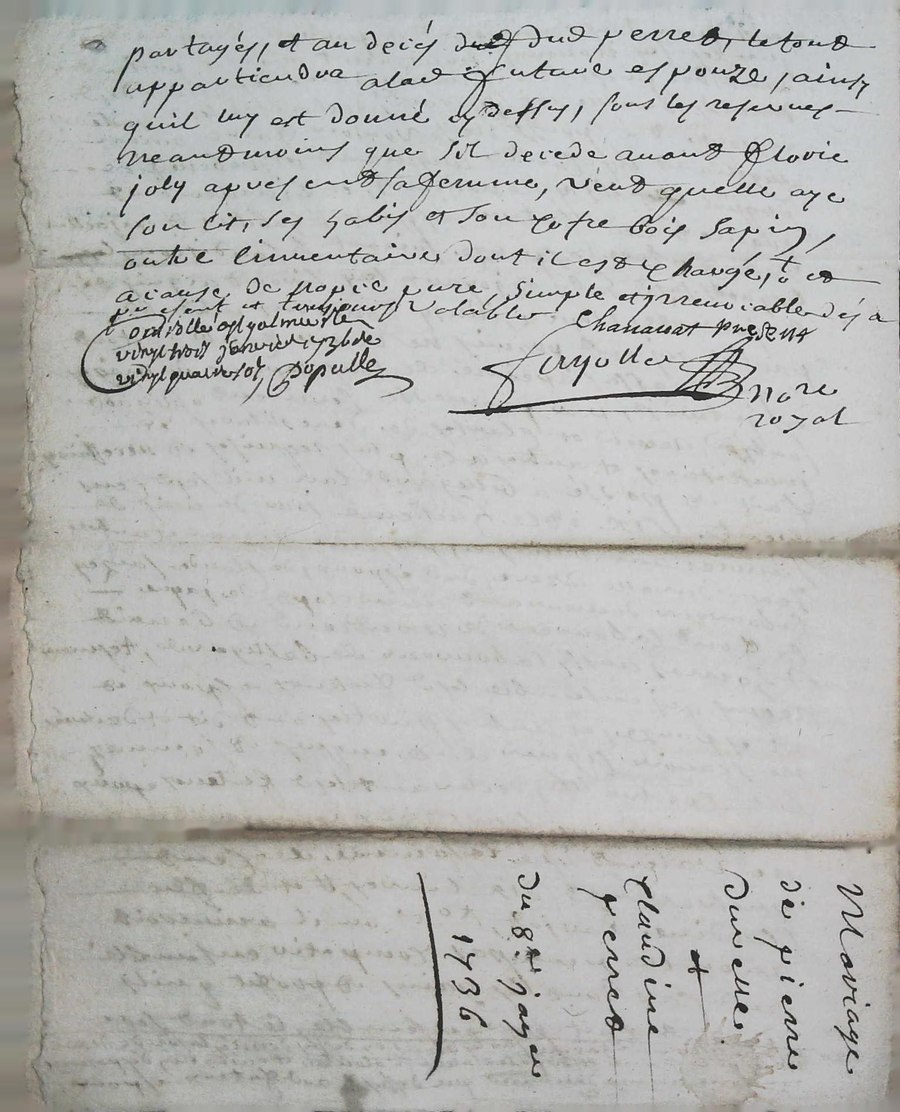 partagés, et au decés dud dud perret, le tout
appartiendra a lad future espouze, ainsy
quil luy est donné cy dessus, sous les reserves
neantmoins que sil decede avant Flovie
joly a present sa femme, veut quelle aye
son lit, ses habis et son cofre bois sapin,
outre linventaire dont il est chargé, et
a cause de nopce pure, simple et irrevocable dés a
present et tousjours valable Chanavat present
Controllé
vingt trois janvier 1736 Re
vingt quatre sols
no.re
royal
Mariage
de pierre
et
Claudine
perret
du 8e janv.er
1736